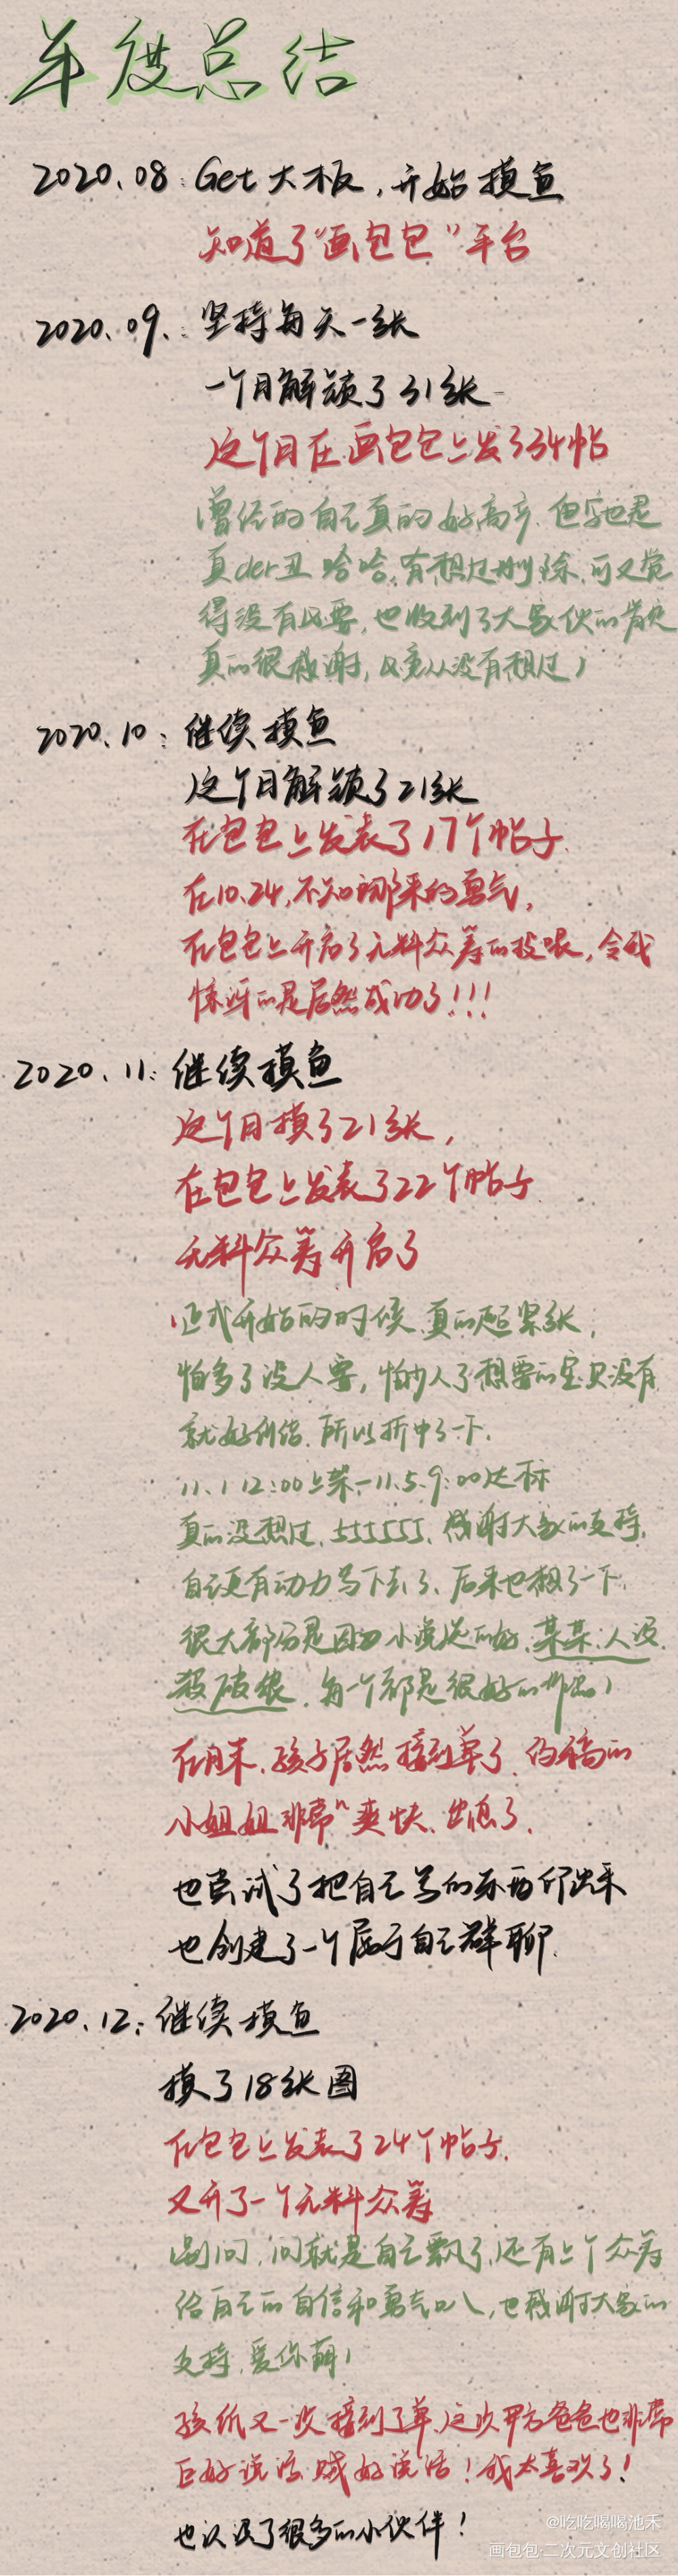 年度总结
2020.08: Get大板，开始摸鱼
知道了“画包包”平台
2020.09.: 坚持每天一张
一个月解锁了31张
这个月在画包包上发了34帖
(曾经的自己真的好高产.但字也是
真der丑 哈哈,有想过删除,可又觉
得没有必要,也收到了大家伙的肯定
真的很感谢,毕竟从没有想过)
2020.10: 继续摸鱼
这个月解锁了21张
在包包上发表了17个帖子.
在10.24,不知哪来的勇气,
在包包上开启了无料众筹的投喂,令我
惊讶的是居然成功了!!!
2020.11: 继续摸鱼
这个月摸了21张,
在包包上发表了22个帖子
无料众筹开启了
(正式开始的时候 真的超紧张,
怕多了没人要,怕少人了想要的宝贝没有
就好纠结.所以折中了一下.
11.1 12:00上架-11.5.9:00达标
真的没想过.555555.感谢大家的支持.
自己更有动力写下去了.后来也想了一下.
很大部分是因为小说选的好.某某.人设.
杀破狼.每一个都是很好的作品)
在月末.孩子居然接到单了.约稿的
小姐姐非常n爽快.生怕了.
也尝试了把自己写的东西印出来
也创建了一个属于自己群聊.
2020.12: 继续摸鱼
摸了18张图
在包包上发表了24个帖子.
又开了一个无料众筹
(别问,问就是自己飘了,还有上个众筹
给自己的自信和勇气叭,也感谢大家的
支持.爱你萌)
孩纸又一次接到了单,这次甲方爸爸也非常
巨好说话,贼好说话!我太喜欢了!
也认识了很多的小伙伴!
@吃吃喝喝池禾
画包包·二次元文创社区